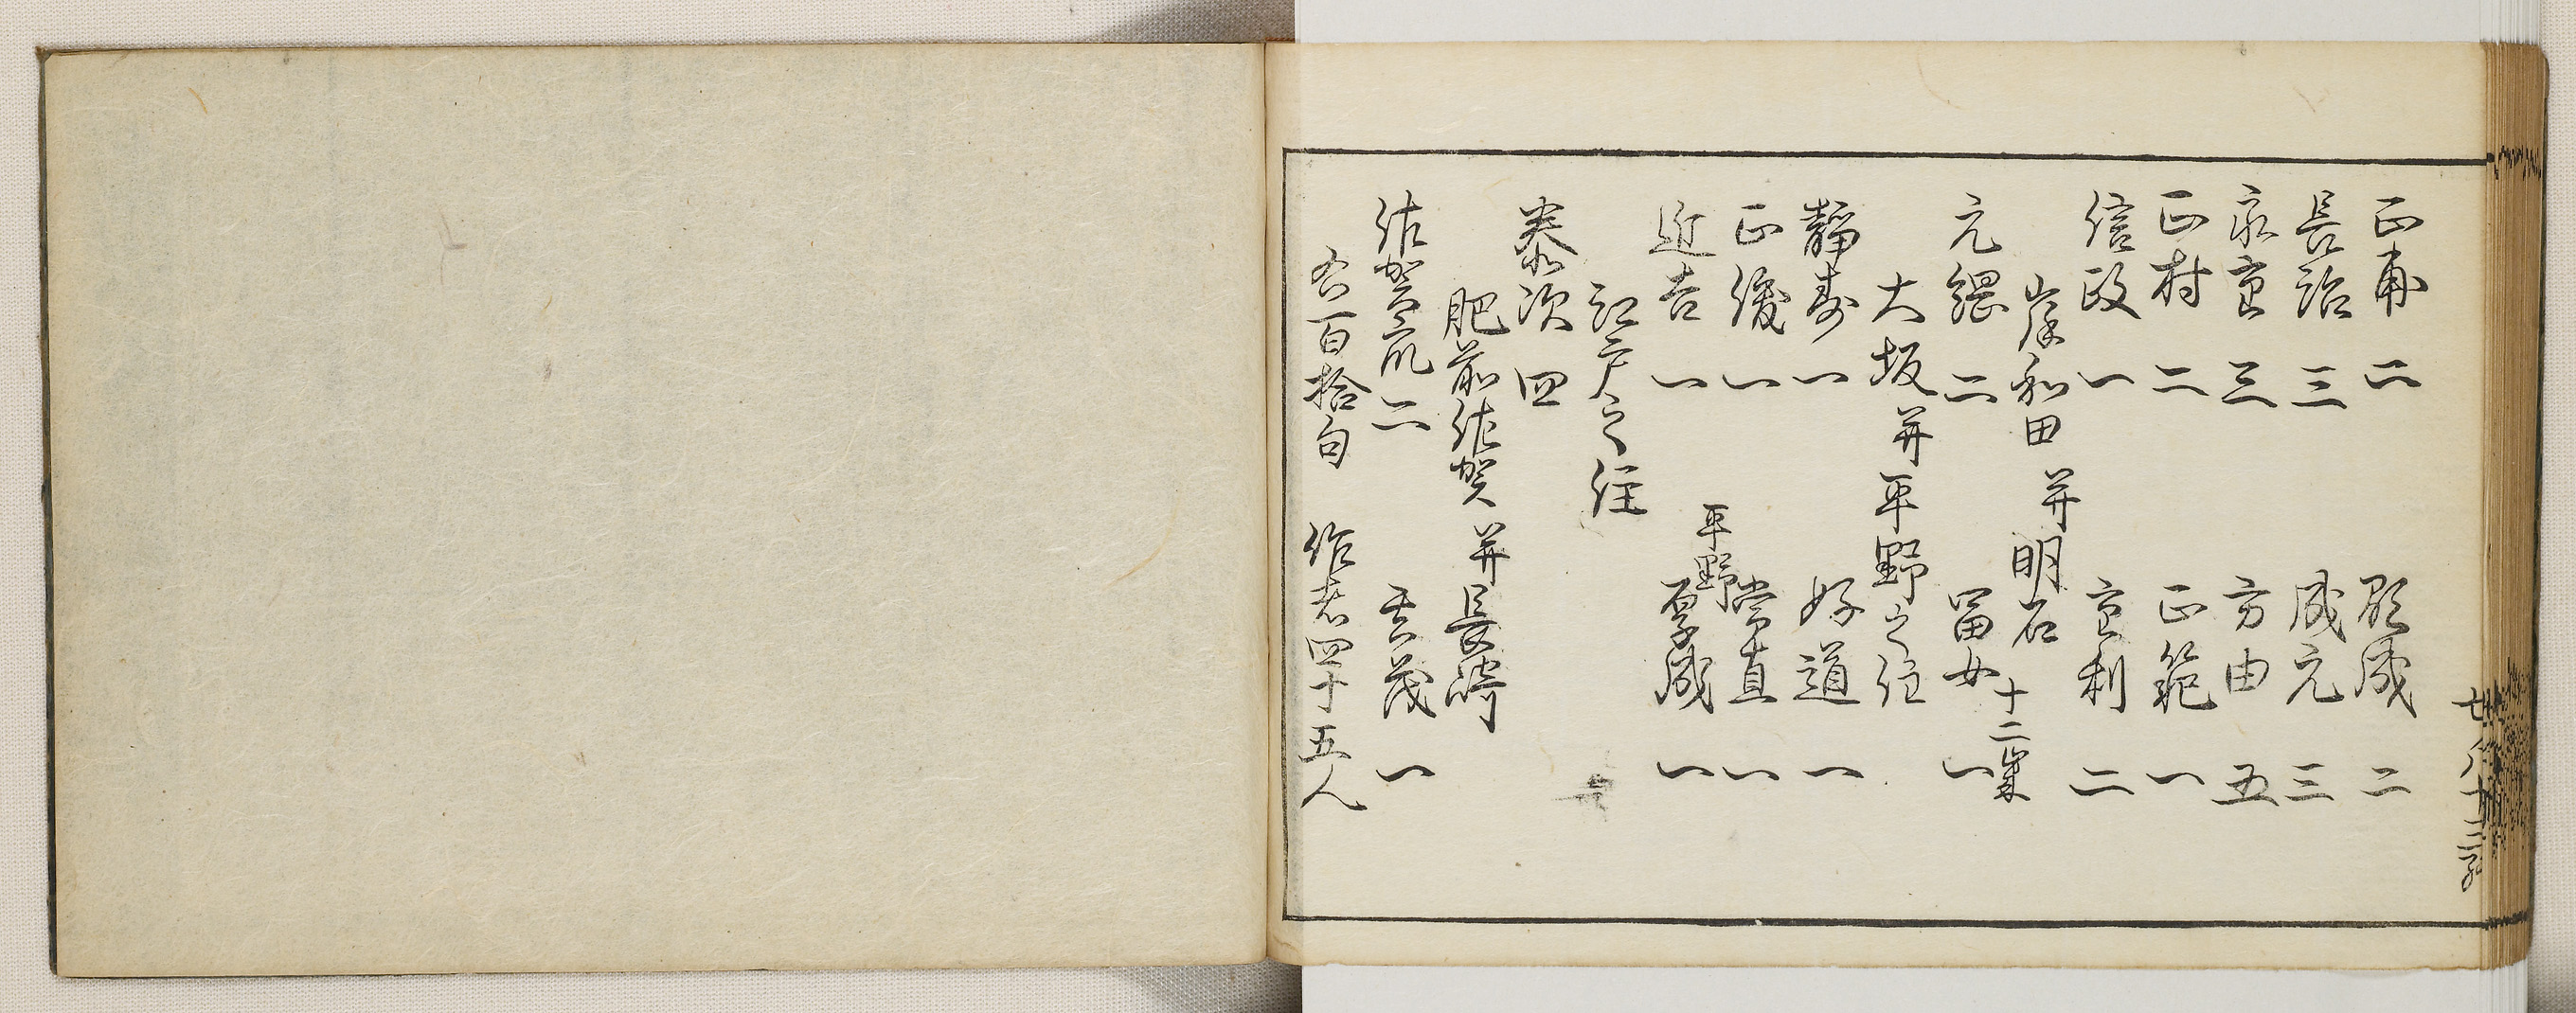 正甫 二　　 成 二
長治 三　　成元 三
永重 三　　方由 五
正村 二　　正範 一
信政 一　　重利 二
岸和田 并 明石
元綱 二　　富女 十二歳 一
大坂 并 平野之住
静寿 一　　好道 一
正俊 一　　常直 一
近吉 一　　平野 夏盛 一
江戸之住
泰次 四
肥前佐賀 并 長崎
佐賀 二　　 茂 一
百拾句　　作者四十五人